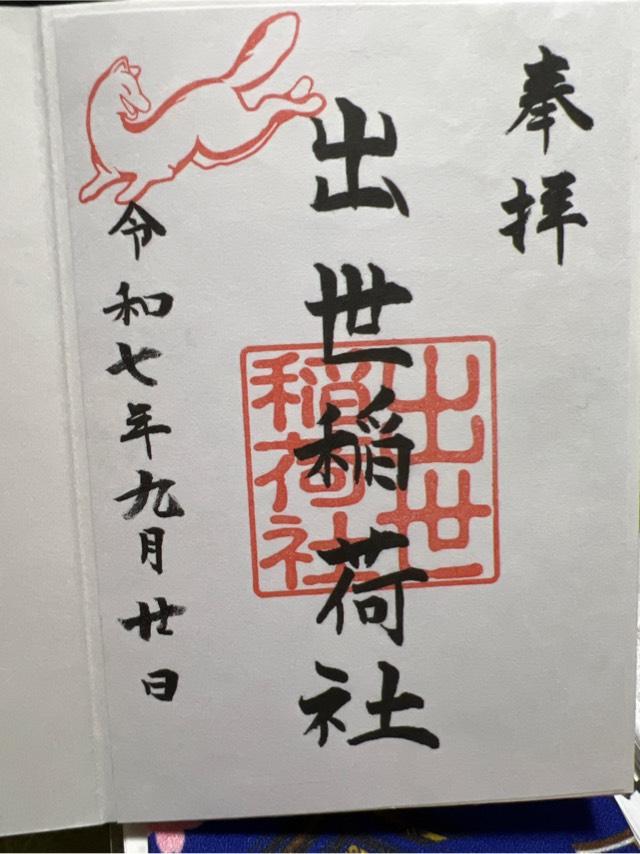 奉拝
出世稲荷社
出世
稲荷社
令和七年九月廿日